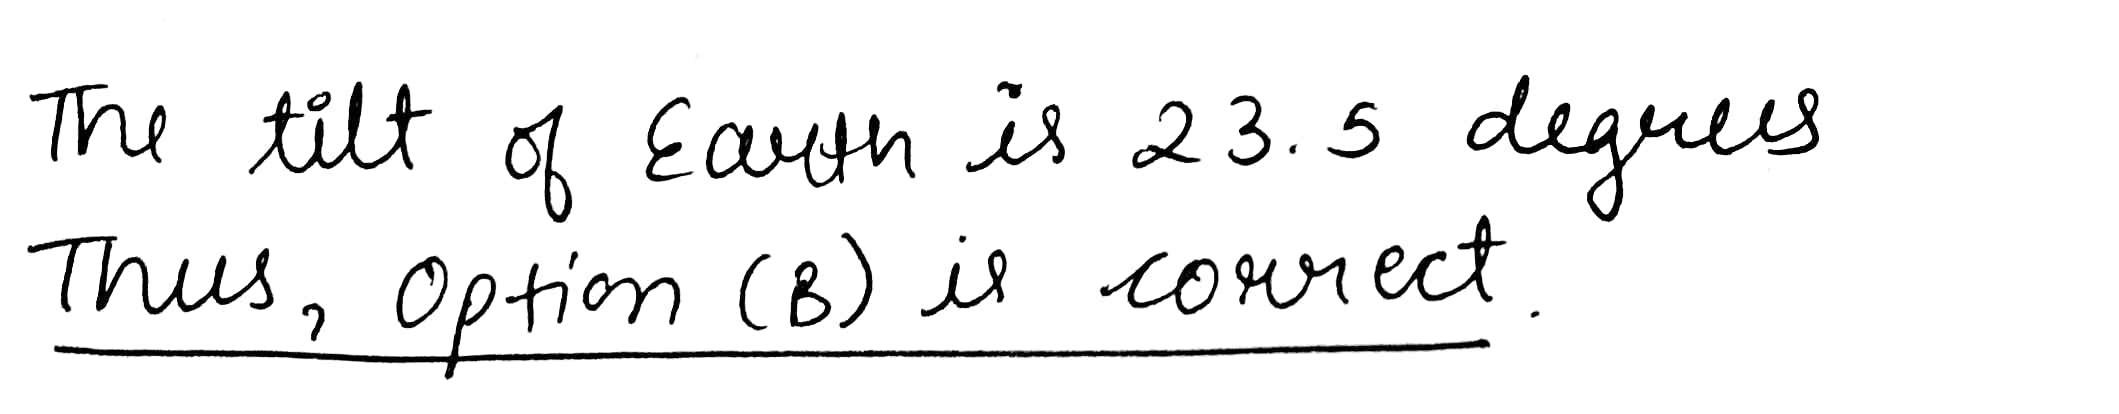 The tilt of Earth is 23.5 degrees
Thus, Option (B) is correct.